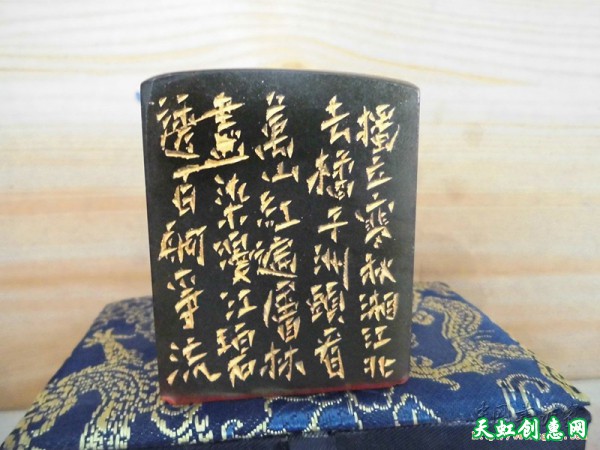 獨立寒秋湘江北
去橘子洲頭看
萬山紅遍層林
盡染漫江碧
透百舸爭流
天虹创意网